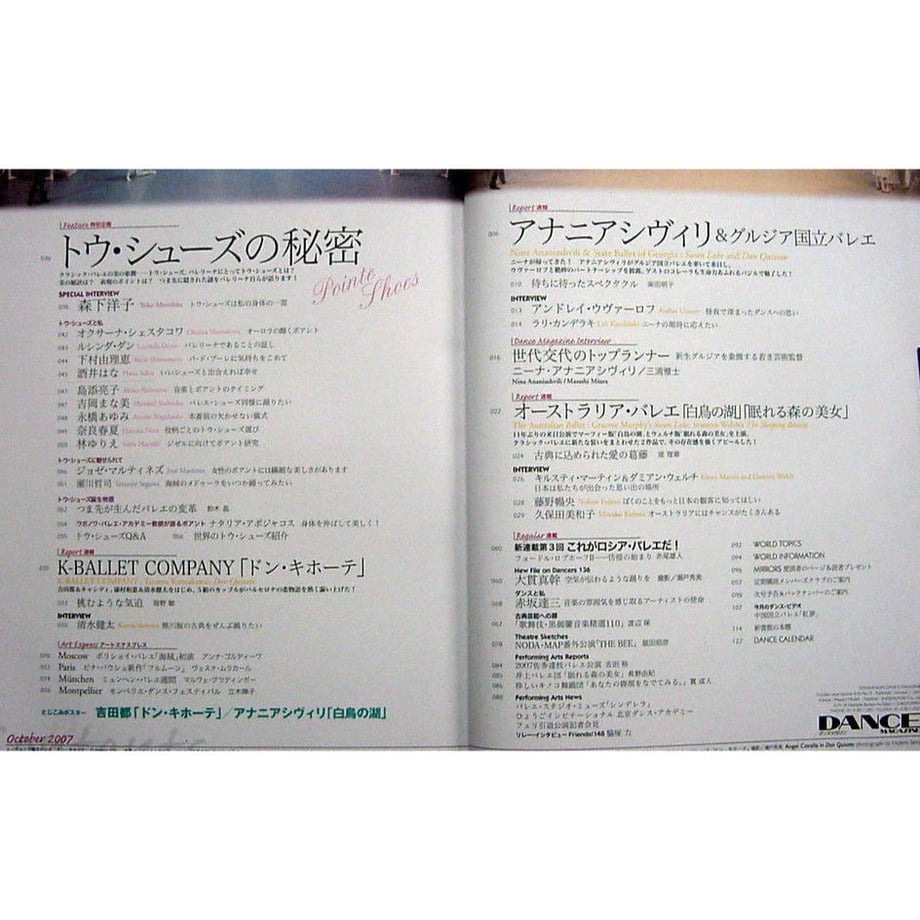 Feature 特別企画
トウ・シューズの秘密
Pointe Shoes
SPECIAL INTERVIEW
森下洋子 Yoko Morishita トウ・シューズは私の身体の一部
トウ・シューズと私
042 オクサーナ・シェスタコワ オーロラの輝くポアント
043 ルシンダ・ダン バレリーナであることの証し
044 下村由理恵 パ・ド・ブーレに気持ちをこめて
045 酒井はな いいシューズと出会えれば幸せ
島添亮子 音楽とポアントのタイミング
吉岡まな美 バレエ・シューズ同様に踊りたい
048 永橋あゆみ 本番前の欠かせない儀式
049 奈良春夏 役柄ごとのトウ・シューズ選び
050 林ゆりえ ジゼルに向けてポアント研究
トウ・シューズに魅せられて
ジョゼ・マルティネズ José Martinez 女性のポアントには繊細な美しさがあります
051 瀬川哲司 海賊のメドゥーラをいつか踊ってみたい
トウ・シューズ誕生物語
052 つま先が生んだバレエの変革 鈴木 晶
ナタリア・アポジャコス 身体を伸ばして美しく!
055 トウ・シューズQ&A 056 世界のトウ・シューズ紹介
Report 速報
K-BALLET COMPANY「ドン・キホーテ」
挑むような気迫 海野 敏
INTERVIEW
清水健太 熊川版の古典をぜんぶ踊りたい
Art Express アートエクスプレス
070 Moscow ボリショイ・バレエ「海賊」初演 アンナ・ゴルディーワ
Paris ピナ・バウシュ新作「フルムーン」 ヴェスナ・ムラカール
074 München ミュンヘン・バレエ週間 マルヴェ・グラディンガー
076 Montpellier モンペリエ・ダンス・フェスティバル 立木燁子
とじこみポスター 吉田都「ドン・キホーテ」/アナニアシヴィリ「白鳥の湖」
October 2007
Report 速報
006 アナニアシヴィリ&グルジア国立バレエ
Nina Ananiashvili & State Ballet of Georgia : Swan Lake and Don Quixote
ニーナが帰ってきた! アナニアシヴィリがグルジア国立バレエを率いて来日し、
010 待ちに待ったスペクタクル 柴田明子
INTERVIEW
013 アンドレイ・ウヴァーロフ Andrei Uvarov 怪我で深まったダンスへの思い
014 ラリ・カンデラキ Lali Kandelaki ニーナの期待に応えたい
Dance Magazine Interview
016 世代交代のトップランナー 新生グルジアを象徴する若き芸術監督
ニーナ・アナニアシヴィリ/三浦雅士
Nina Ananiashvili / Masashi Miura
Report 速報
022 オーストラリア・バレエ「白鳥の湖」「眠れる森の美女」
The Australian Ballet : Graeme Murphy's Swan Lake, Stanton Welch's The Sleeping Beauty
024 古典に込められた愛の葛藤
INTERVIEW
026 キルスティ・マーティン&ダミアン・ウェルチ Kirsty Martin and Damien Welch
日本は私たちが出会った思い出の場所
028 藤野暢央 ぼくのことをもっと日本の観客に知ってほしい
029 久保田美和子 Miwako Kubota オーストラリアにはチャンスがたくさんある
Regular 連載
060 新連載第3回 これがロシア・バレエだ!
New File on Dancers 136
大貫真幹 空気が伝わるような踊りを 撮影/瀬戸秀美
ダンスと私
068 赤坂達三 音楽の雰囲気を感じ取るアーティストの使命
古典芸能への扉
067 「歌舞伎・黒御簾音楽精選110」渡辺 保
Theatre Sketches
078 NODA・MAP番外公演「THE BEE」 扇田昭彦
Performing Arts Reports
084 2007佐多達枝バレエ公演 吉田 裕
085 井上バレエ団「眠れる森の美女」長野由紀
Performing Arts News
バレエ・スタジオ・ミューズ「シンデレラ」
ひょうごインビテーショナル 北京ダンス・アカデミー
フェリ引退公演記者会見
リレー・インタビュー Friends!148 脇塚 力
092 WORLD TOPICS
094 WORLD INFORMATION
096 MIRRORS 愛読者のページ&読者プレゼント
定期購読メンバーズクラブのご案内
次号予告&バックナンバーのご案内
107 今月のダンス・ビデオ
中国国立バレエ「紅夢」
114 新書館の本棚
122 DANCE CALENDAR
DANCE
MAGAZINE
ダンスマガジン